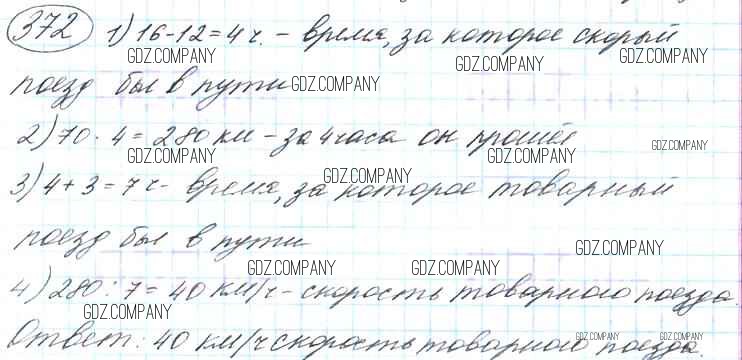 372 1) 16-12=4 ч. - время, за которое скорый
GDZ.COMPANY GDZ.COMPANY GDZ.COMPANY
поезд был в пути GDZ.COMPANY
2) 70 · 4 = 280 км - за 4 часа он прошёл
GDZ.COMPANY GDZ.COMPANY
3) 4+3=7 ч - время, за которое товарный
GDZ.COMPANY
поезд был в пути
GDZ.COMPANY
GDZ.COMPANY GDZ.COMPANY
4) 280 : 7 = 40 км/ч - скорость товарного поезда.
GDZ.COMPANY
Ответ: 40 км/ч скорость товарного поезда.
GDZ.COMPANY GDZ.COMPANY